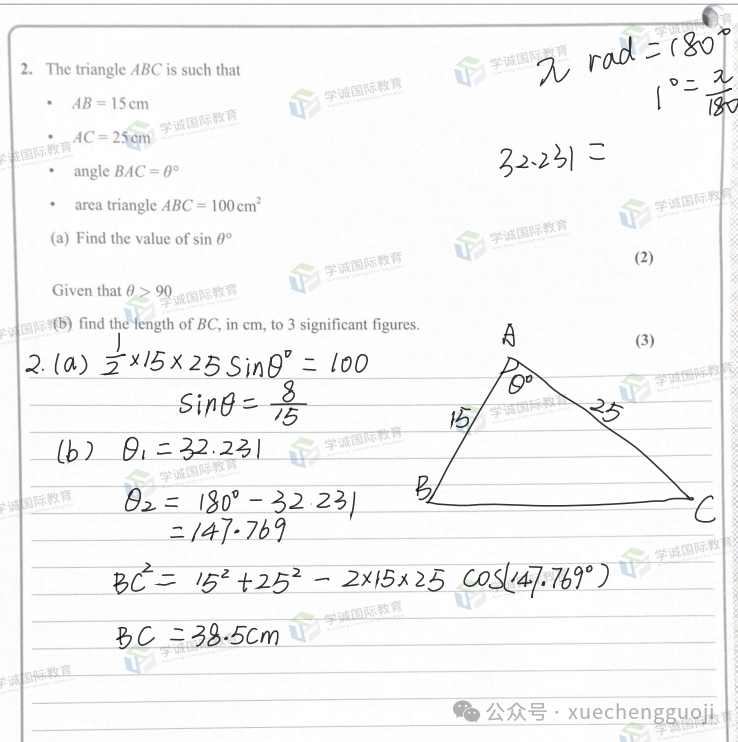 π rad = 180°
1° = π/180
32.231 =
2. The triangle ABC is such that
• AB = 15 cm
• AC = 25 cm
• angle BAC = θ°
• area triangle ABC = 100 cm²
(a) Find the value of sin θ°
(2)
Given that θ > 90
(b) find the length of BC, in cm, to 3 significant figures.
(3)
2. (a) 1/2 × 15 × 25 sinθ° = 100
sinθ = 8/15
(b) θ₁ = 32.231
θ₂ = 180° − 32.231
= 147.769
BC² = 15² + 25² − 2×15×25 cos(147.769°)
BC = 38.5cm
A
θ°
15
25
B
C
学诚国际教育
公众号 · xuechengguoji